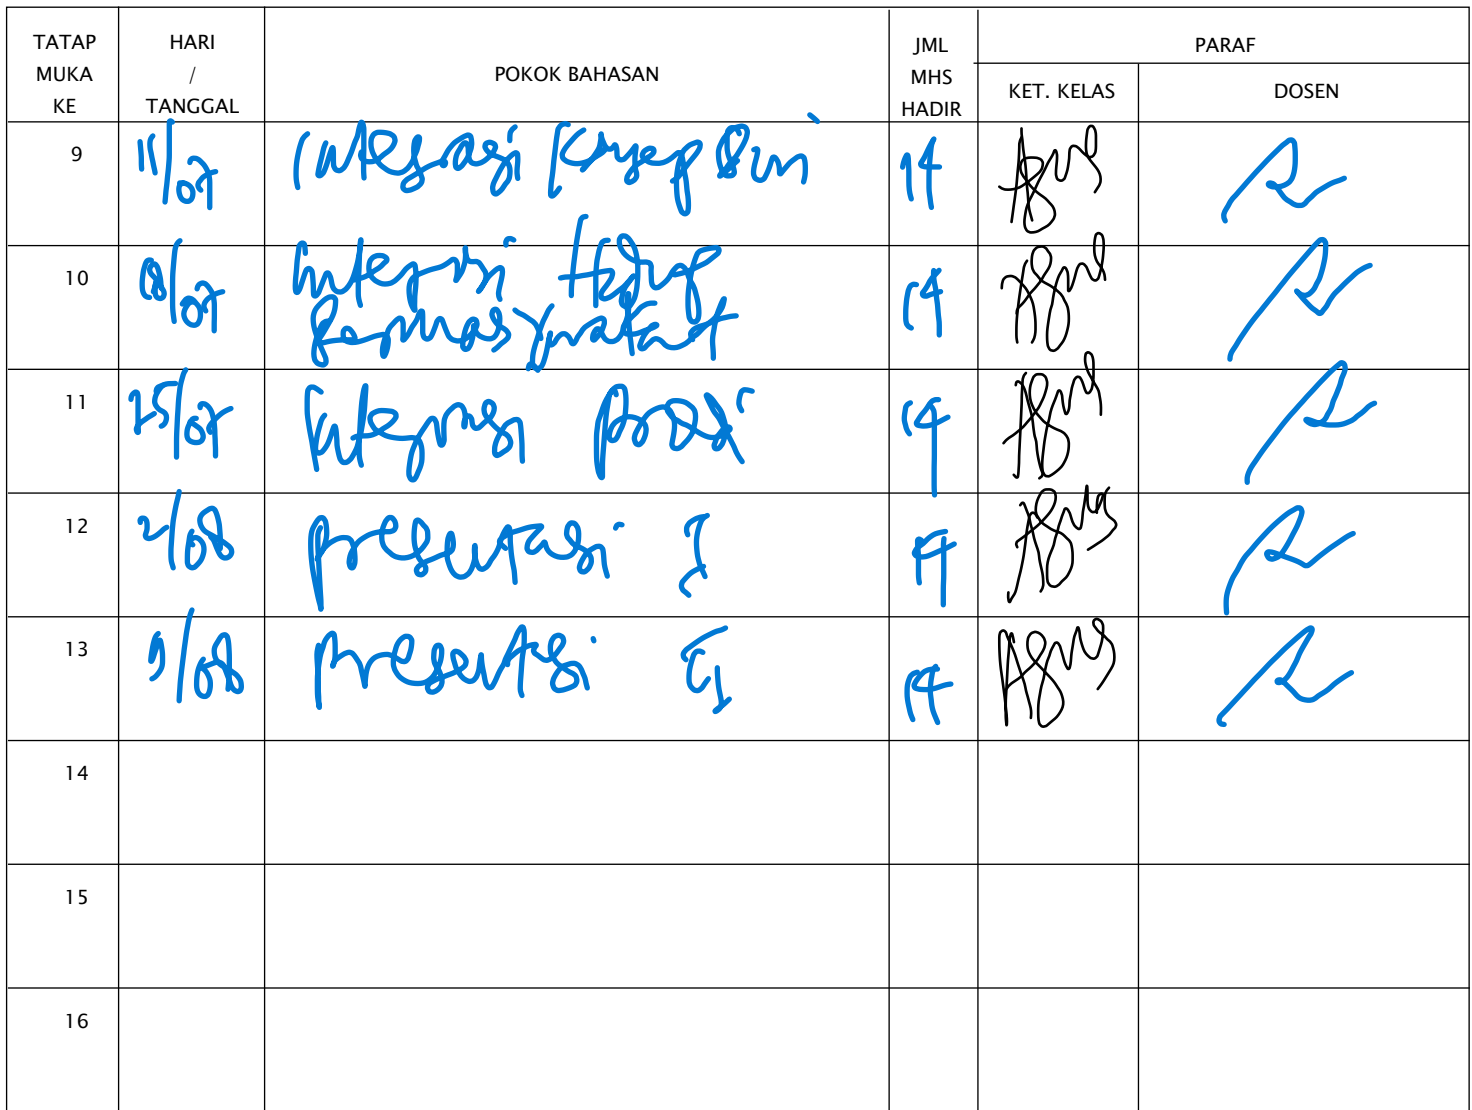 TATAP MUKA KE HARI / TANGGAL POKOK BAHASAN JML MHS HADIR PARAF
KET. KELAS DOSEN
9 11/07 Integrasi Konsep Diri 14 Agus
10 18/07 integrasi Hidup
bermasyarakat 14 Agus
11 25/07 Integrasi 14 Agus
12 2/08 presentasi I 14 Agus
13 9/08 presentasi II 14 Agus
14
15
16